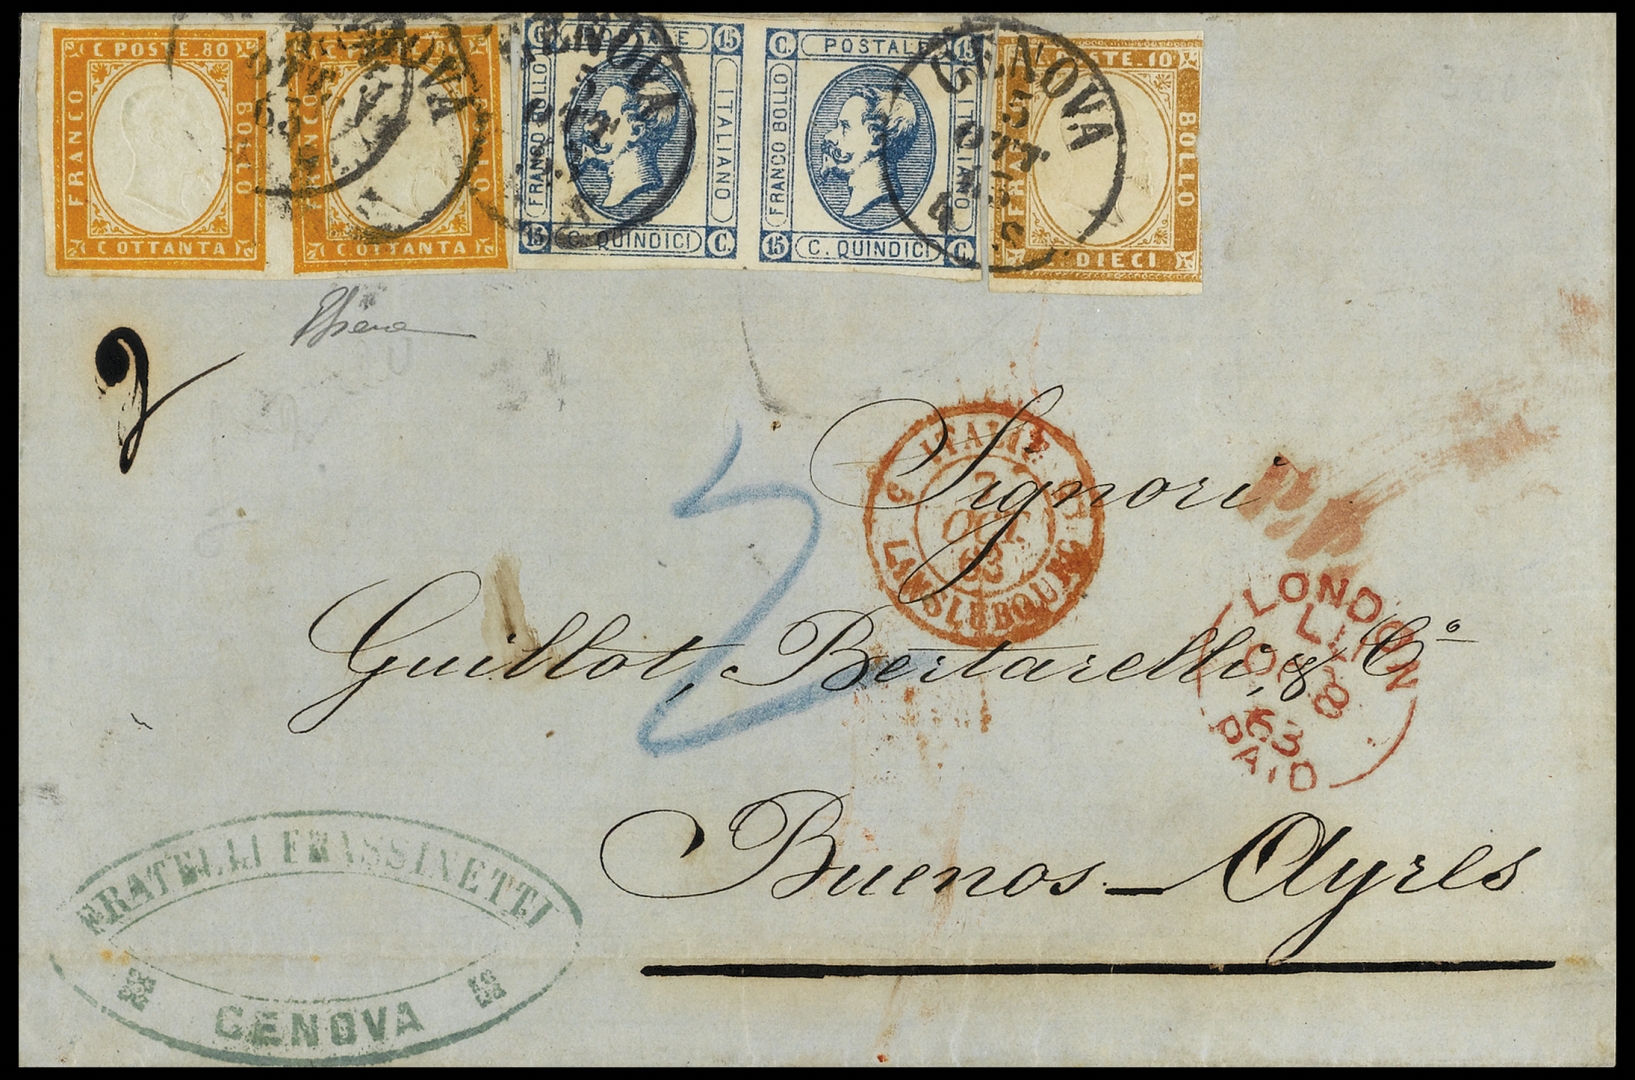 C POSTE. 80
FRANCO
BOLLO
C OTTANTA
FRANCO
BOLLO
C OTTANTA
C. POSTALE 15
FRANCO BOLLO
ITALIANO
15 C. QUINDICI C.
C. POSTALE 15
FRANCO BOLLO
ITALIANO
15 C. QUINDICI C.
C. POSTE. 10
FRANCO
BOLLO
C. DIECI
GENOVA
OTT
63
GENOVA
5
OTT
GENOVA
5
OTT
63
2
Signori
Guillot, Bertarelli, & Cº
Buenos-Ayres
2
ITALIE
OCT
63
LANSLEBOURG
LONDON
OC 8
63
PAID
FRATELLI FRASSINETTI
GENOVA